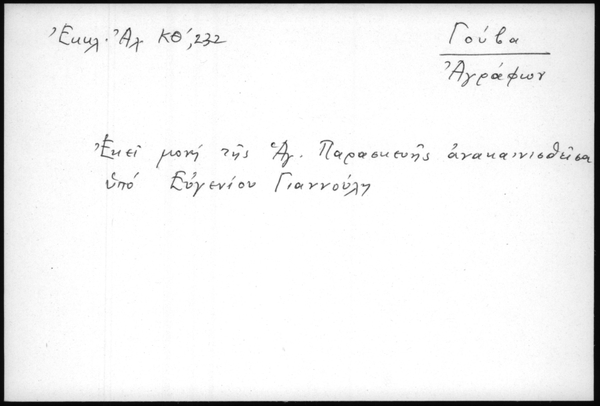 Ἐκκλ. Ἀλ ΚΘ´, 232
Γούβα
Ἀγράφων
Ἐκεῖ μονή τῆς Ἁγ. Παρασκευῆς ἀνακαινισθεῖσα
ὑπό Εὐγενίου Γιαννούλη